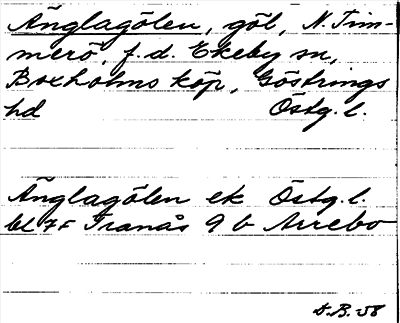 Änglagölen, göl, N. Tim-
merö, f.d. Ekeby sn,
Boxholms köp, Göstrings
hd Östg. l.
Änglagölen ek Östg. l.
bl 7F Tranås 9 b Arrebo
D.B. -58